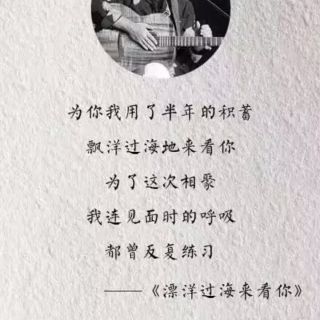 为你我用了半年的积蓄
飘洋过海地来看你
为了这次相聚
我连见面时的呼吸
都曾反复练习
——《漂洋过海来看你》